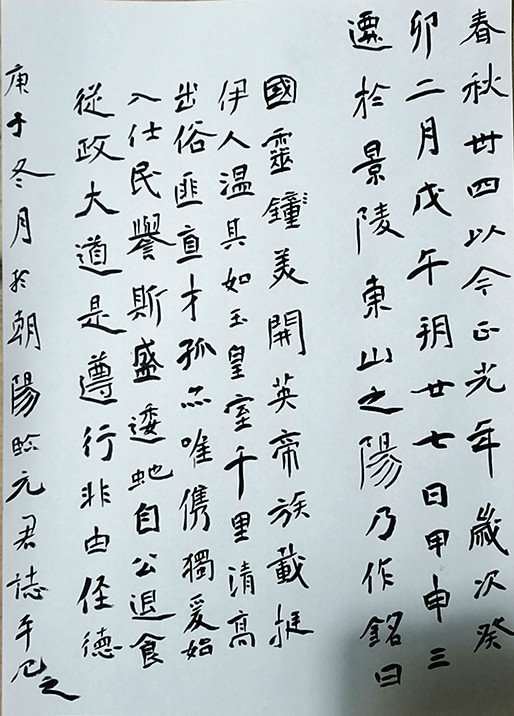 春秋卌四以今正光年歲次癸
卯二月戊午朔廿七日甲申三
遷於景陵東山之陽乃作銘曰
國靈鐘美開英帝族載挺
伊人温其如玉皇室千里清高
出俗匪直才孤亦唯儁獨爰始
入仕民譽斯盛逶虵自公退食
從政大道是遵行非由俓德
庚子冬月於朝陽臨元君誌平凡之